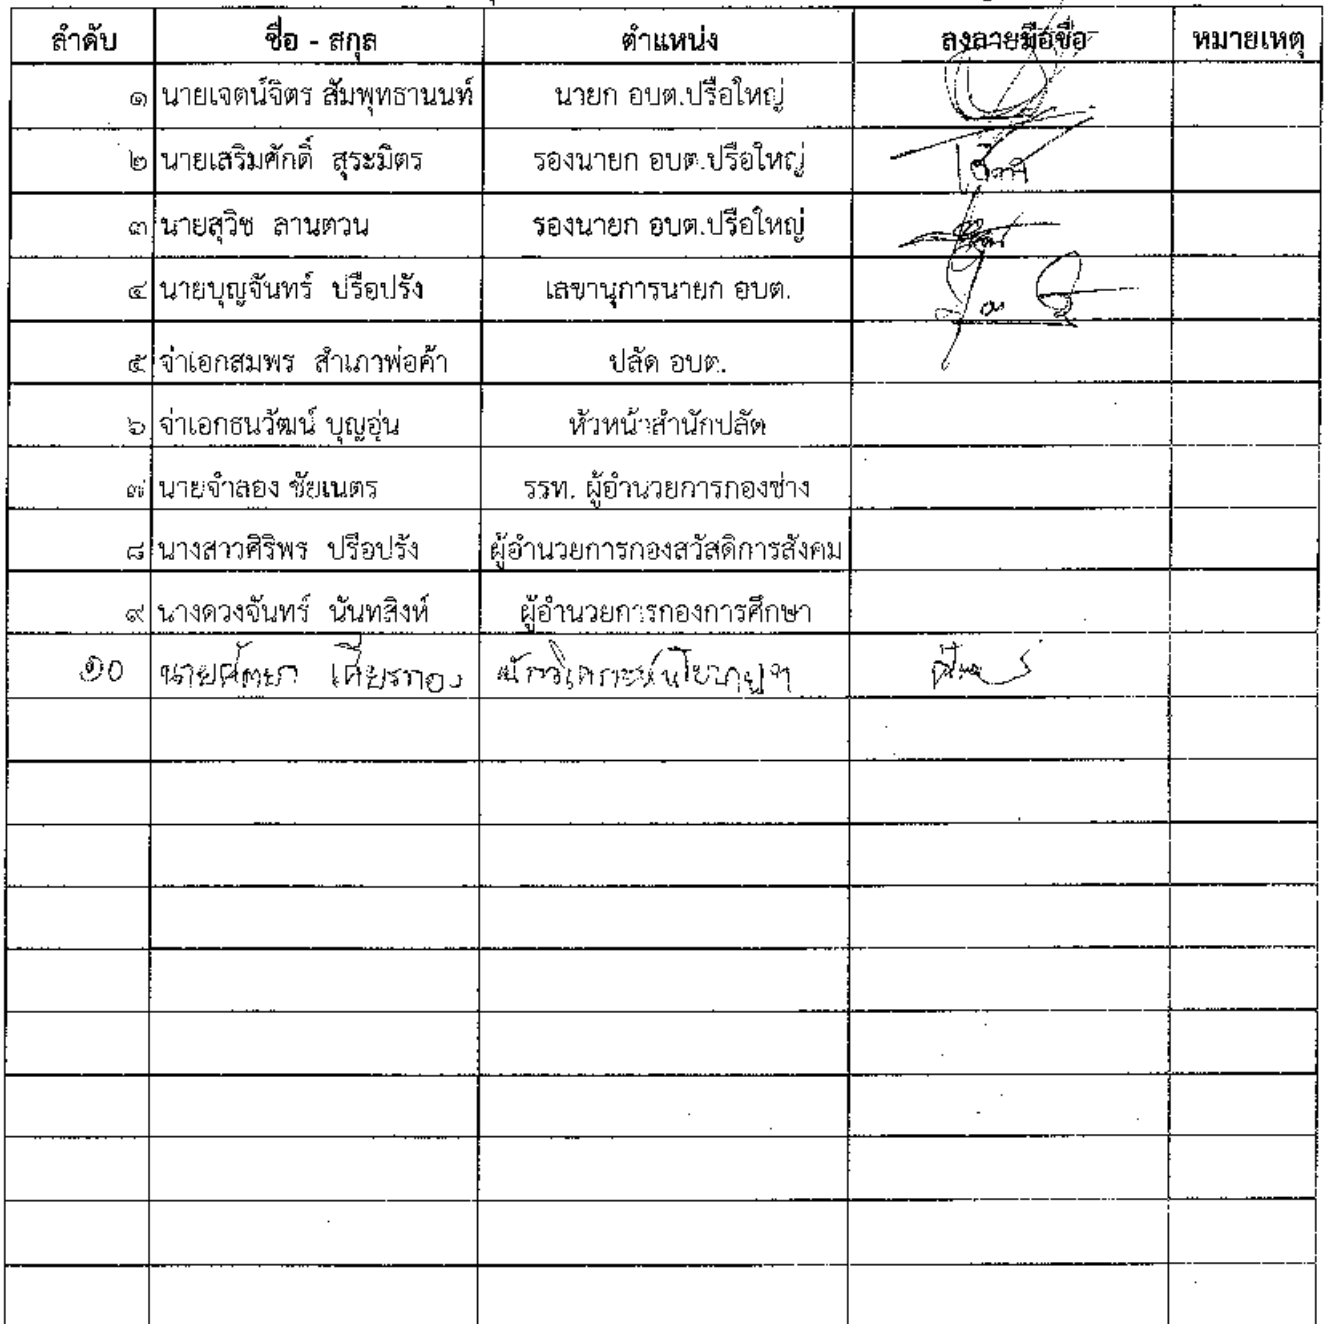 ลำดับ ชื่อ - สกุล ตำแหน่ง ลงลายมือชื่อ หมายเหตุ
๑ นายเจตน์จิตร สัมพุทธานนท์ นายก อบต.ปรือใหญ่
๒ นายเสริมศักดิ์ สุระมิตร รองนายก อบต.ปรือใหญ่
๓ นายสุวิช ลานตวน รองนายก อบต.ปรือใหญ่
๔ นายบุญจันทร์ ปรือปรัง เลขานุการนายก อบต.
๕ จ่าเอกสมพร สำเภาพ่อค้า ปลัด อบต.
๖ จ่าเอกธนวัฒน์ บุญอุ่น หัวหน้าสำนักปลัด
๗ นายจำลอง ชัยเนตร รรท. ผู้อำนวยการกองช่าง
๘ นางสาวศิริพร ปรือปรัง ผู้อำนวยการกองสวัสดิการสังคม
๙ นางดวงจันทร์ นันทสิงห์ ผู้อำนวยการกองการศึกษา
๑๐ นักวิเคราะห์นโยบายฯ